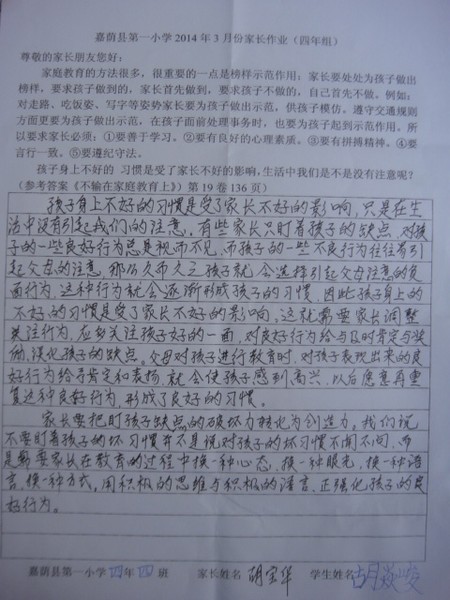 嘉荫县第一小学 2014 年 3 月份家长作业（四年组）
尊敬的家长朋友您好：
家庭教育的方法很多，很重要的一点是榜样示范作用；家长要处处为孩子做出
榜样，要求孩子做到的，家长首先做到，要求孩子不做的，自己首先不做。例如：
对走路、吃饭姿、写字等姿势家长要为孩子做出示范，供孩子模仿。遵守交通规则
方面更要为孩子做出示范，在孩子面前处理事务时，也要为孩子起到示范作用。所
以要求家长必须：①要善于学习。②要有良好的心理素质。③要有拼搏精神。④要
言行一致。⑤要遵纪守法。
孩子身上不好的 习惯是受了家长不好的影响，生活中我们是不是没有注意呢？
（参考答案《不输在家庭教育上》）第 19 卷 136 页）
孩子身上不好的习惯是受了家长不好的影响，只是在生
活中没有引起我们的注意，有些家长只盯着孩子的缺点，对孩
子的一些良好行为总是视而不见，而孩子的一些不良行为往往容引
起父母的注意，那么久而久之孩子就会选择引起父母注意的负
面行为，这种行为就会逐渐形成孩子的习惯，因此孩子身上的
不好的习惯是受了家长不好的影响，这就需要家长调整
关注行为，应多关注孩子好的一面，对良好行为给与及时肯定与奖
励，淡化孩子的缺点，父母对孩子进行教育时，对孩子表现出来的良
好行为给予肯定和表扬，就会使孩子感到高兴，以后愿意再重
复这种良好行为，形成了良好的习惯。
家长要把盯孩子缺点的破坏力转化为创造力，我们说
不要盯着孩子的坏习惯并不是说对孩子的坏习惯不闻不问，而
是需要家长在教育的过程中换一种心态，换一种眼光，换一种语
言，换一种方式，用积极的思维与积极的语言，正强化孩子的良
好行为。
嘉荫县第一小学 四 年 四 班 家长姓名 胡宝华 学生姓名 胡焱峻